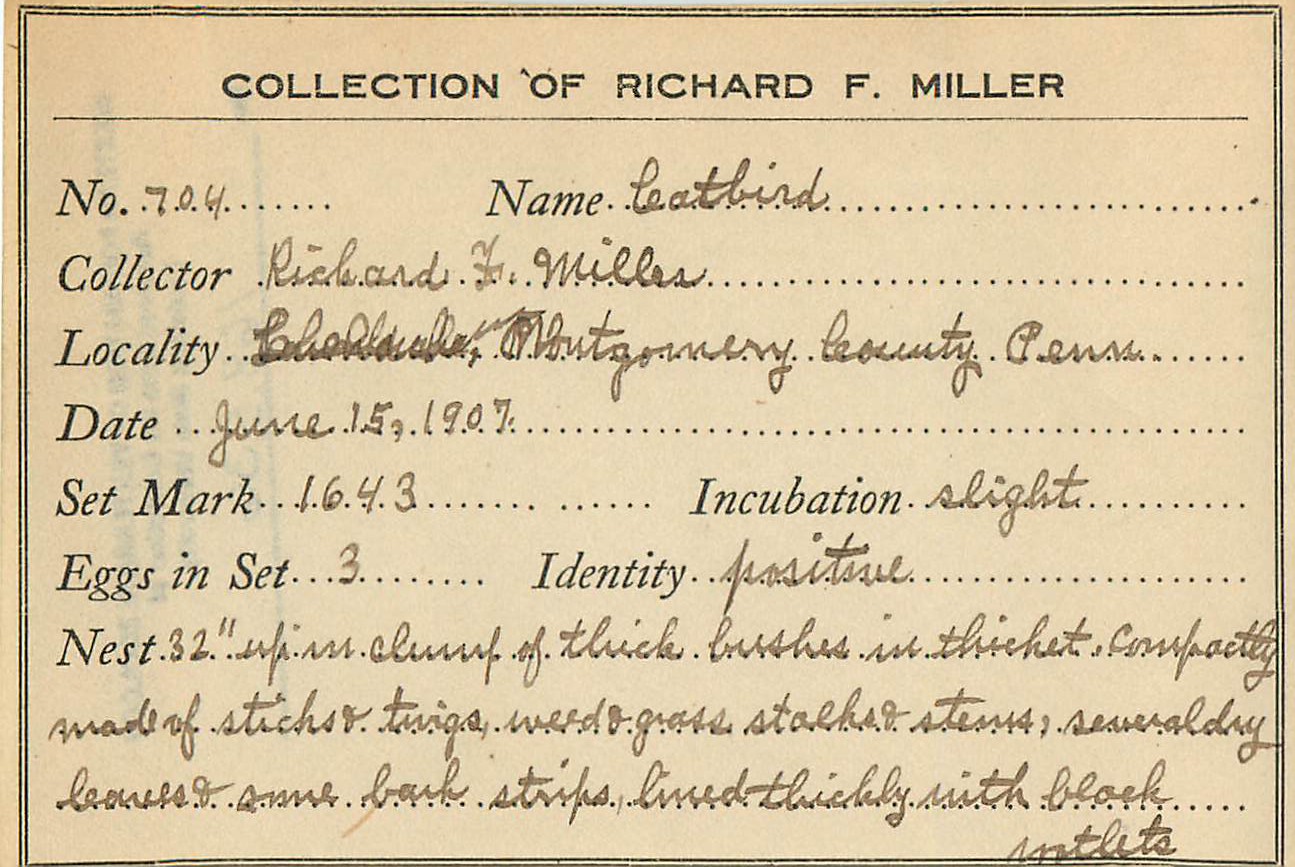 COLLECTION OF RICHARD F. MILLER
No. 704 Name Catbird
Collector Richard F. Miller
Locality Montgomery County Penn
Date June 15, 1907.
Set Mark 1643 Incubation slight
Eggs in Set 3 Identity positive
Nest 32" up in clump of thick bushes in thicket. Compactly
made of sticks & twigs, weed & grass stalks & stems, several dry
leaves & some bark strips, lined thickly with black
rootlets